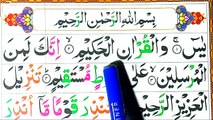 بِسْمِ اللهِ الرَّحْمٰنِ الرَّحِيْمِ
يٰسٓ ۚ وَالْقُرْاٰنِ الْحَكِيْمِ ۙ اِنَّكَ لَمِنَ
الْمُرْسَلِيْنَ ۙ عَلٰى طٍ مُّسْتَقِيْمٍ ؕ تَنْزِيْلَ
الْعَزِيْزِ الرَّحِ لِتُنْذِرَ قَوْمًا مَّاۤ اُنْذِرَ